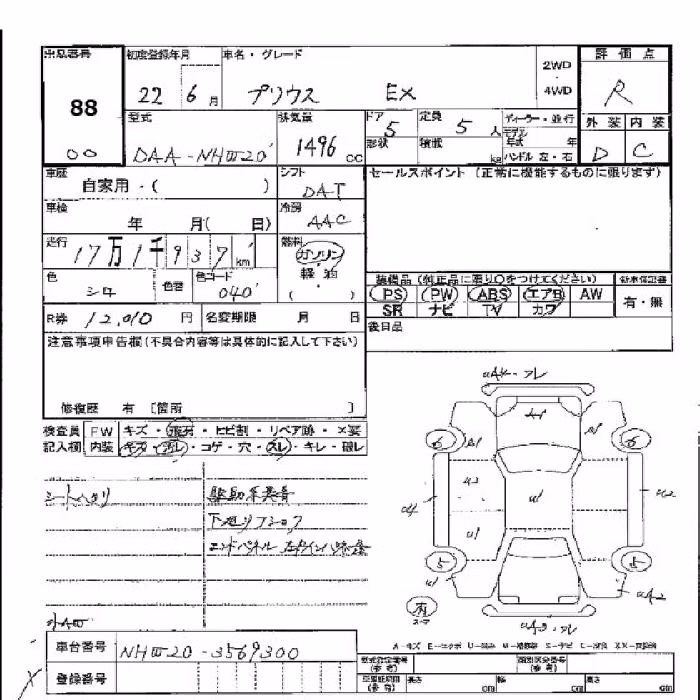 出品番号 初度登録年月 車名・グレード 2WD 4WD 評価点
88 22 6月 プリウス EX R
型式 排気量 ドア 5 定員 5人 ディーラー・並行 外装 内装
00 DAA-NHW20 1496 cc 形状 積載 kg モデル年式 年 ハンドル 左・右 D C
車歴 シフト セールスポイント(正常に機能するものに限ります)
自家用・( ) DAT
車検 冷房
年 月( 日) AAC
走行 燃料
17万1千937km ガソリン
軽油
色 色替 色コード ( ) 装備品(純正品に限り○をつけてください) 新車保証書
シロ 040 PS PW ABS エアB AW 有・無
SR ナビ TV カワ
R券 12,010円 名変期限 月 日 後日品
注意事項申告欄(不具合内容等は具体的に記入して下さい)
修復歴 有 [箇所 ]
検査員 FW キズ・飛石・ヒビ割・リペア跡・X要
記入欄 内装 キズ・汚レ・コゲ・穴・スレ・キレ・破レ
A4・アレ
A1
6 A1 A1 6
U3
A4 U1 A2
U1
5 5
U1 A2
有
A3・アレ
シートヘタリ 駆動系異音
下廻りフショク
エンドパネル
車台番号 NHW20-3569300
登録番号
型式指定番号 類別区分番号
長さ cm 幅 cm 高さ cm